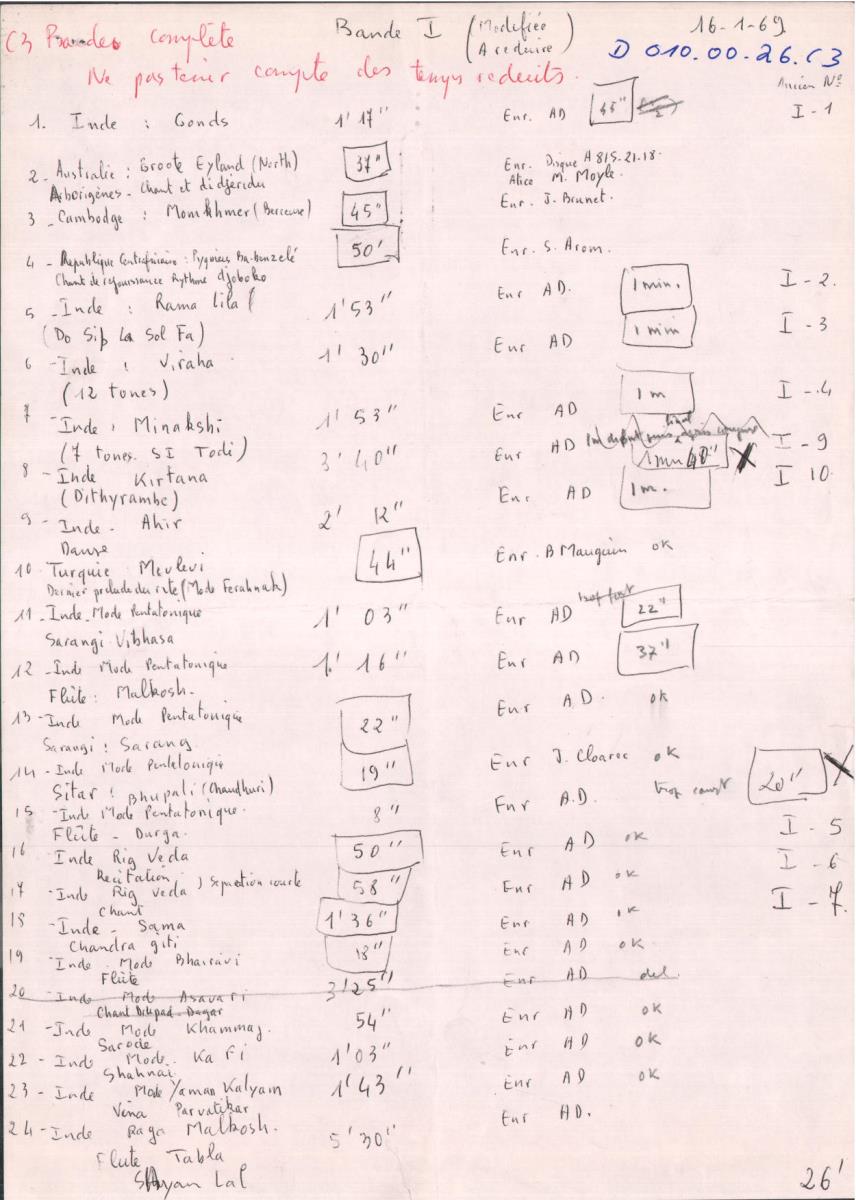 C3 Bandes complète
Bande I (Modifiée A reduire)
16-1-69
D 010.00.26.C3
Ne pas tenir compte des temps reduits.
Ancien N°
1. Inde : Gonds 1' 17" Enr. AD 45" I-1
2 - Australie : Groote Eyland (North) 37" Enr. Disque A 815.21.18.
Aborigènes - Chant et didjeridu Alice M. Moyle.
3 - Cambodge : Monkhmer (Berceuse) 45" Enr. J. Brunet.
4 - Republique Centrafricaine : Pygmées Ba-benzelé 50' Enr. S. Arom.
Chant de rejouissance Rythme djoboko
5 - Inde : Rama Lila 1' 53" Enr AD. 1 min. I-2.
(Do Sib La Sol Fa)
6 - Inde : Viraha 1' 30" Enr AD 1 min I-3
(12 tones)
7 - Inde : Minakshi 1' 53" Enr AD 1 m I-4
(7 tones. SI Todi)
8 - Inde Kirtana 3' 40" Enr AD 1 mn 40" X I-9
(Dithyrambe)
9 - Inde - Ahir 2' 12" Enr. AD 1 m. I 10
Danse
10 - Turquie Mevlevi 44" Enr. B Mauguin ok
Dernier prelude du rite (Mode Ferahnak)
11 - Inde - Mode Pentatonique 1' 03" Enr AD trop fort 22"
Sarangi Vibhasa
12 - Inde Mode Pentatonique 1' 16" Enr AD 37"
Flûte : Malkosh.
13 - Inde Mode Pentatonique 22" Enr A.D. ok
Sarangi : Sarang
14 - Inde Mode Pentatonique 19" Enr J. Cloarec ok
Sitar : Bhupali (Chaudhuri)
15 - Inde Mode Pentatonique. 8" Enr A.D. trop court 20" X
Flûte - Durga.
16 Inde Rig Veda 50" Enr AD ok I-5
Recitation
17 - Inde Rig Veda 58" Enr AD ok I-6
Chant
18 - Inde - Sama 1' 36" Enr AD ok I-7.
Chandra giti
19 - Inde Mode Bhairavi 18" Enr AD ok
Flûte
20 - Inde Mode Asavari 3'25" Enr AD del.
Chant Dhpad - Dagar
21 - Inde Mode Khammaj. 54" Enr AD ok
Sarode
22 - Inde Mode Kafi 1'03" Enr AD ok
Shahnai
23 - Inde Mode Yaman Kalyam 1'43" Enr AD ok
Vina Parvatikar
24 - Inde Raga Malkosh. 5'30" Enr AD.
Flute Tabla
Shyam Lal
26'